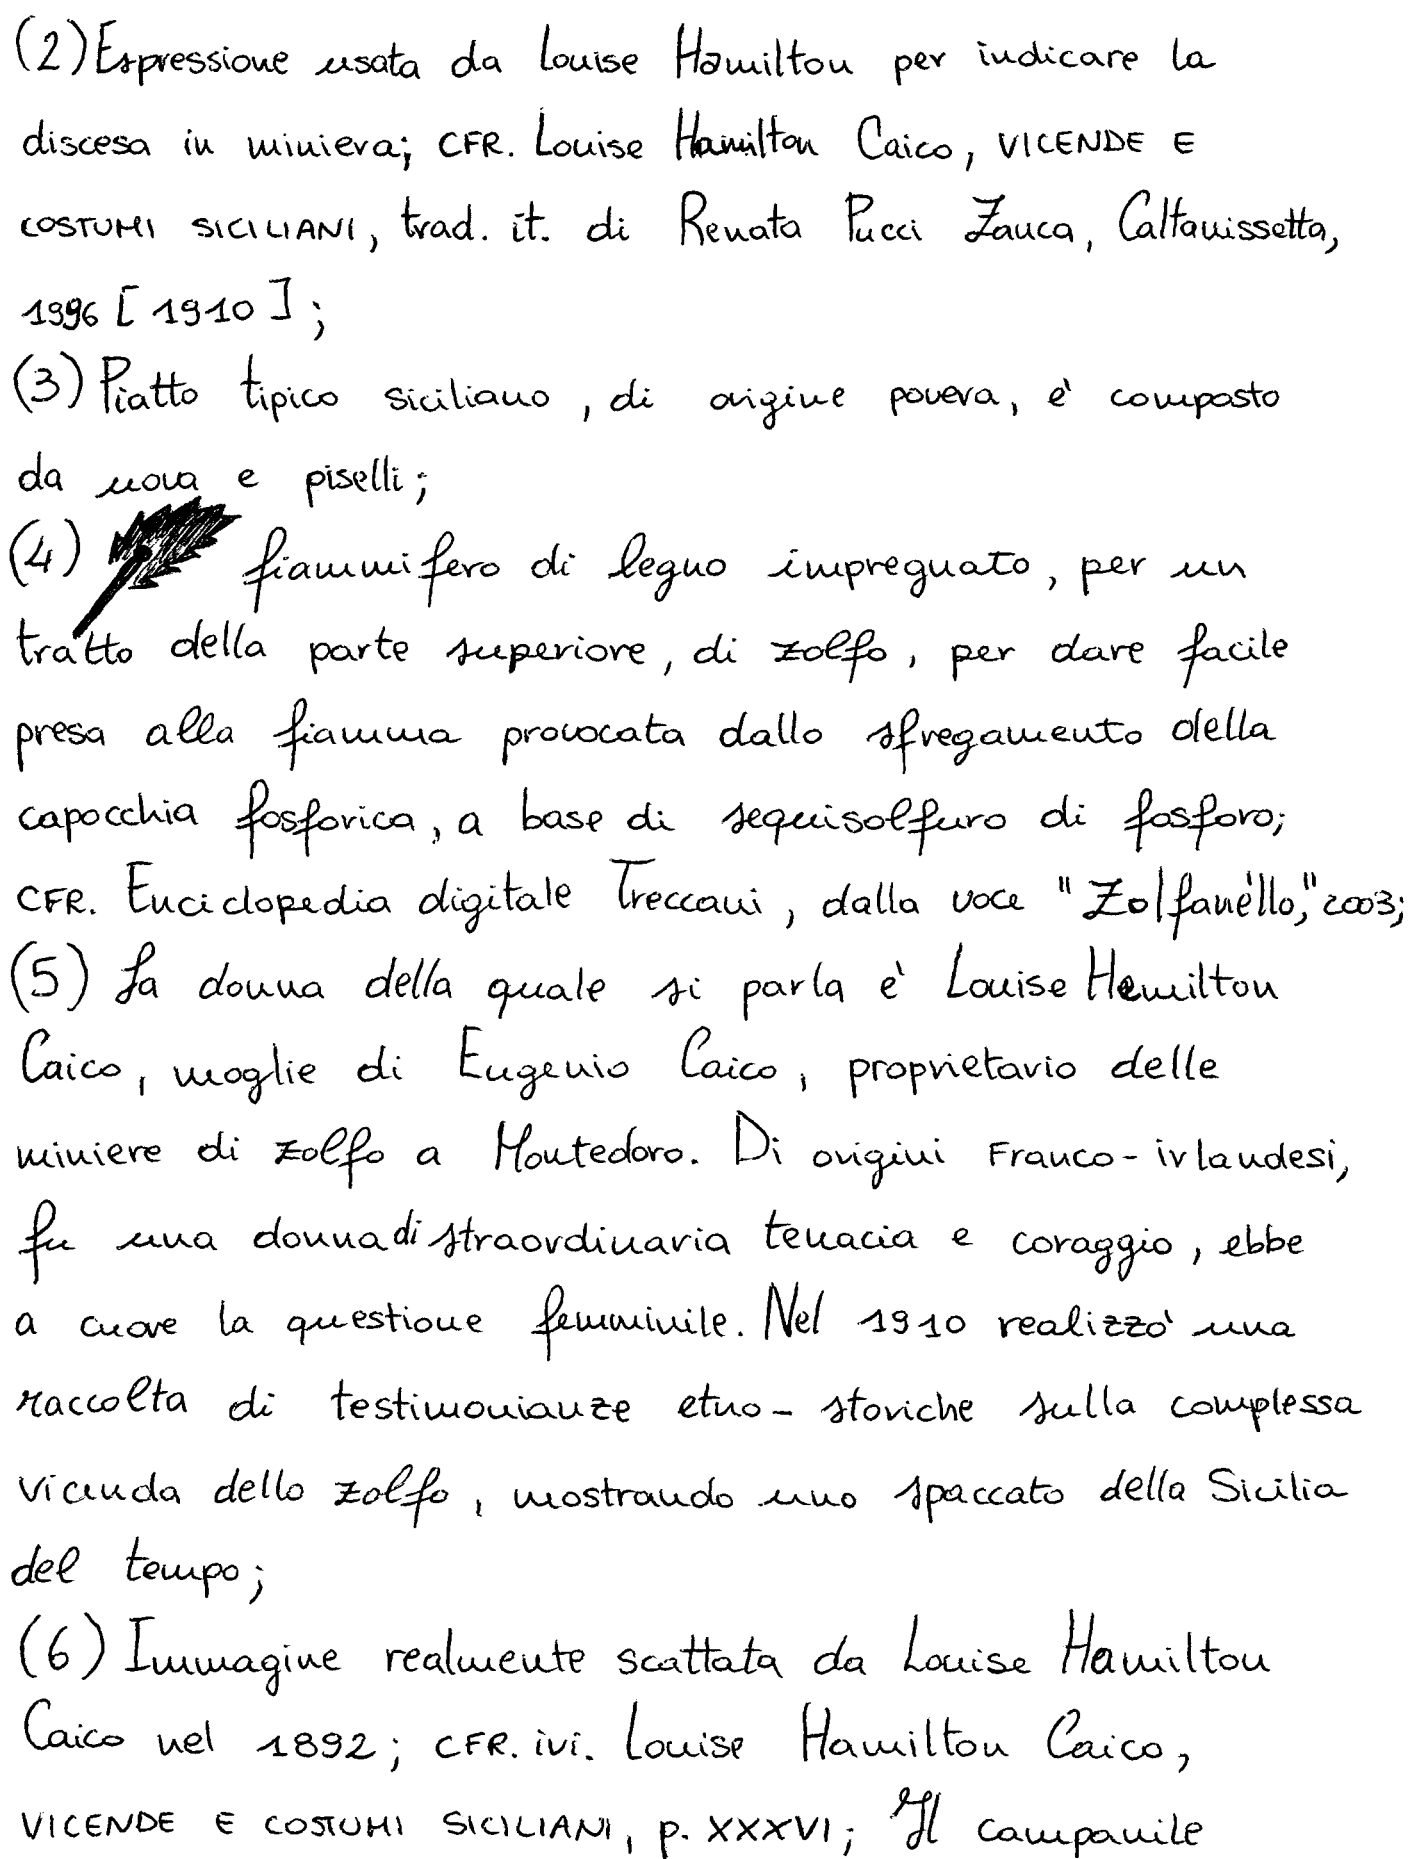 (2) Espressione usata da Louise Hamilton per indicare la
discesa in miniera; CFR. Louise Hamilton Caico, VICENDE E
COSTUMI SICILIANI, trad. it. di Renata Pucci Zanca, Caltanissetta,
1996 [1910];
(3) Piatto tipico siciliano, di origine povera, è composto
da uova e piselli;
(4) fiammifero di legno impregnato, per un
tratto della parte superiore, di zolfo, per dare facile
presa alla fiamma provocata dallo sfregamento della
capocchia fosforica, a base di sequisolfuro di fosforo;
CFR. Enciclopedia digitale Treccani, dalla voce "Zolfanéllo," 2003;
(5) La donna della quale si parla è Louise Hemilton
Caico, moglie di Eugenio Caico, proprietario delle
miniere di zolfo a Montedoro. Di origini Franco-irlandesi,
fu una donna di straordinaria tenacia e coraggio, ebbe
a cuore la questione femminile. Nel 1910 realizzò una
raccolta di testimonianze etno-storiche sulla complessa
vicenda dello zolfo, mostrando uno spaccato della Sicilia
del tempo;
(6) Immagine realmente scattata da Louise Hamilton
Caico nel 1892; CFR. ivi. Louise Hamilton Caico,
VICENDE E COSTUMI SICILIANI, p. XXXVI; Il campanile